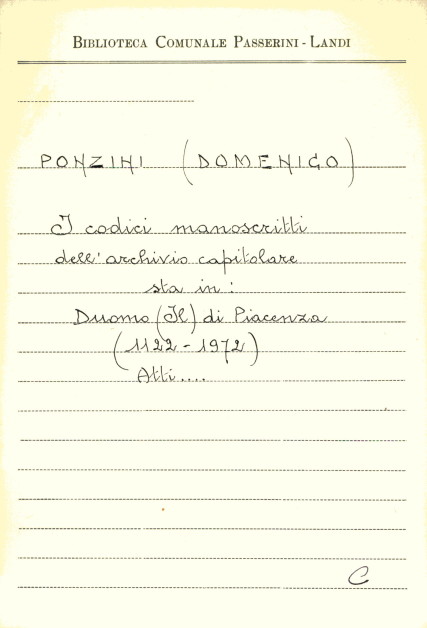 BIBLIOTECA COMUNALE PASSERINI - LANDI
PONZINI (DOMENICO)
I codici manoscritti
dell'archivio capitolare
sta in:
Duomo (Il) di Piacenza
(1122 - 1972)
Atti....
C